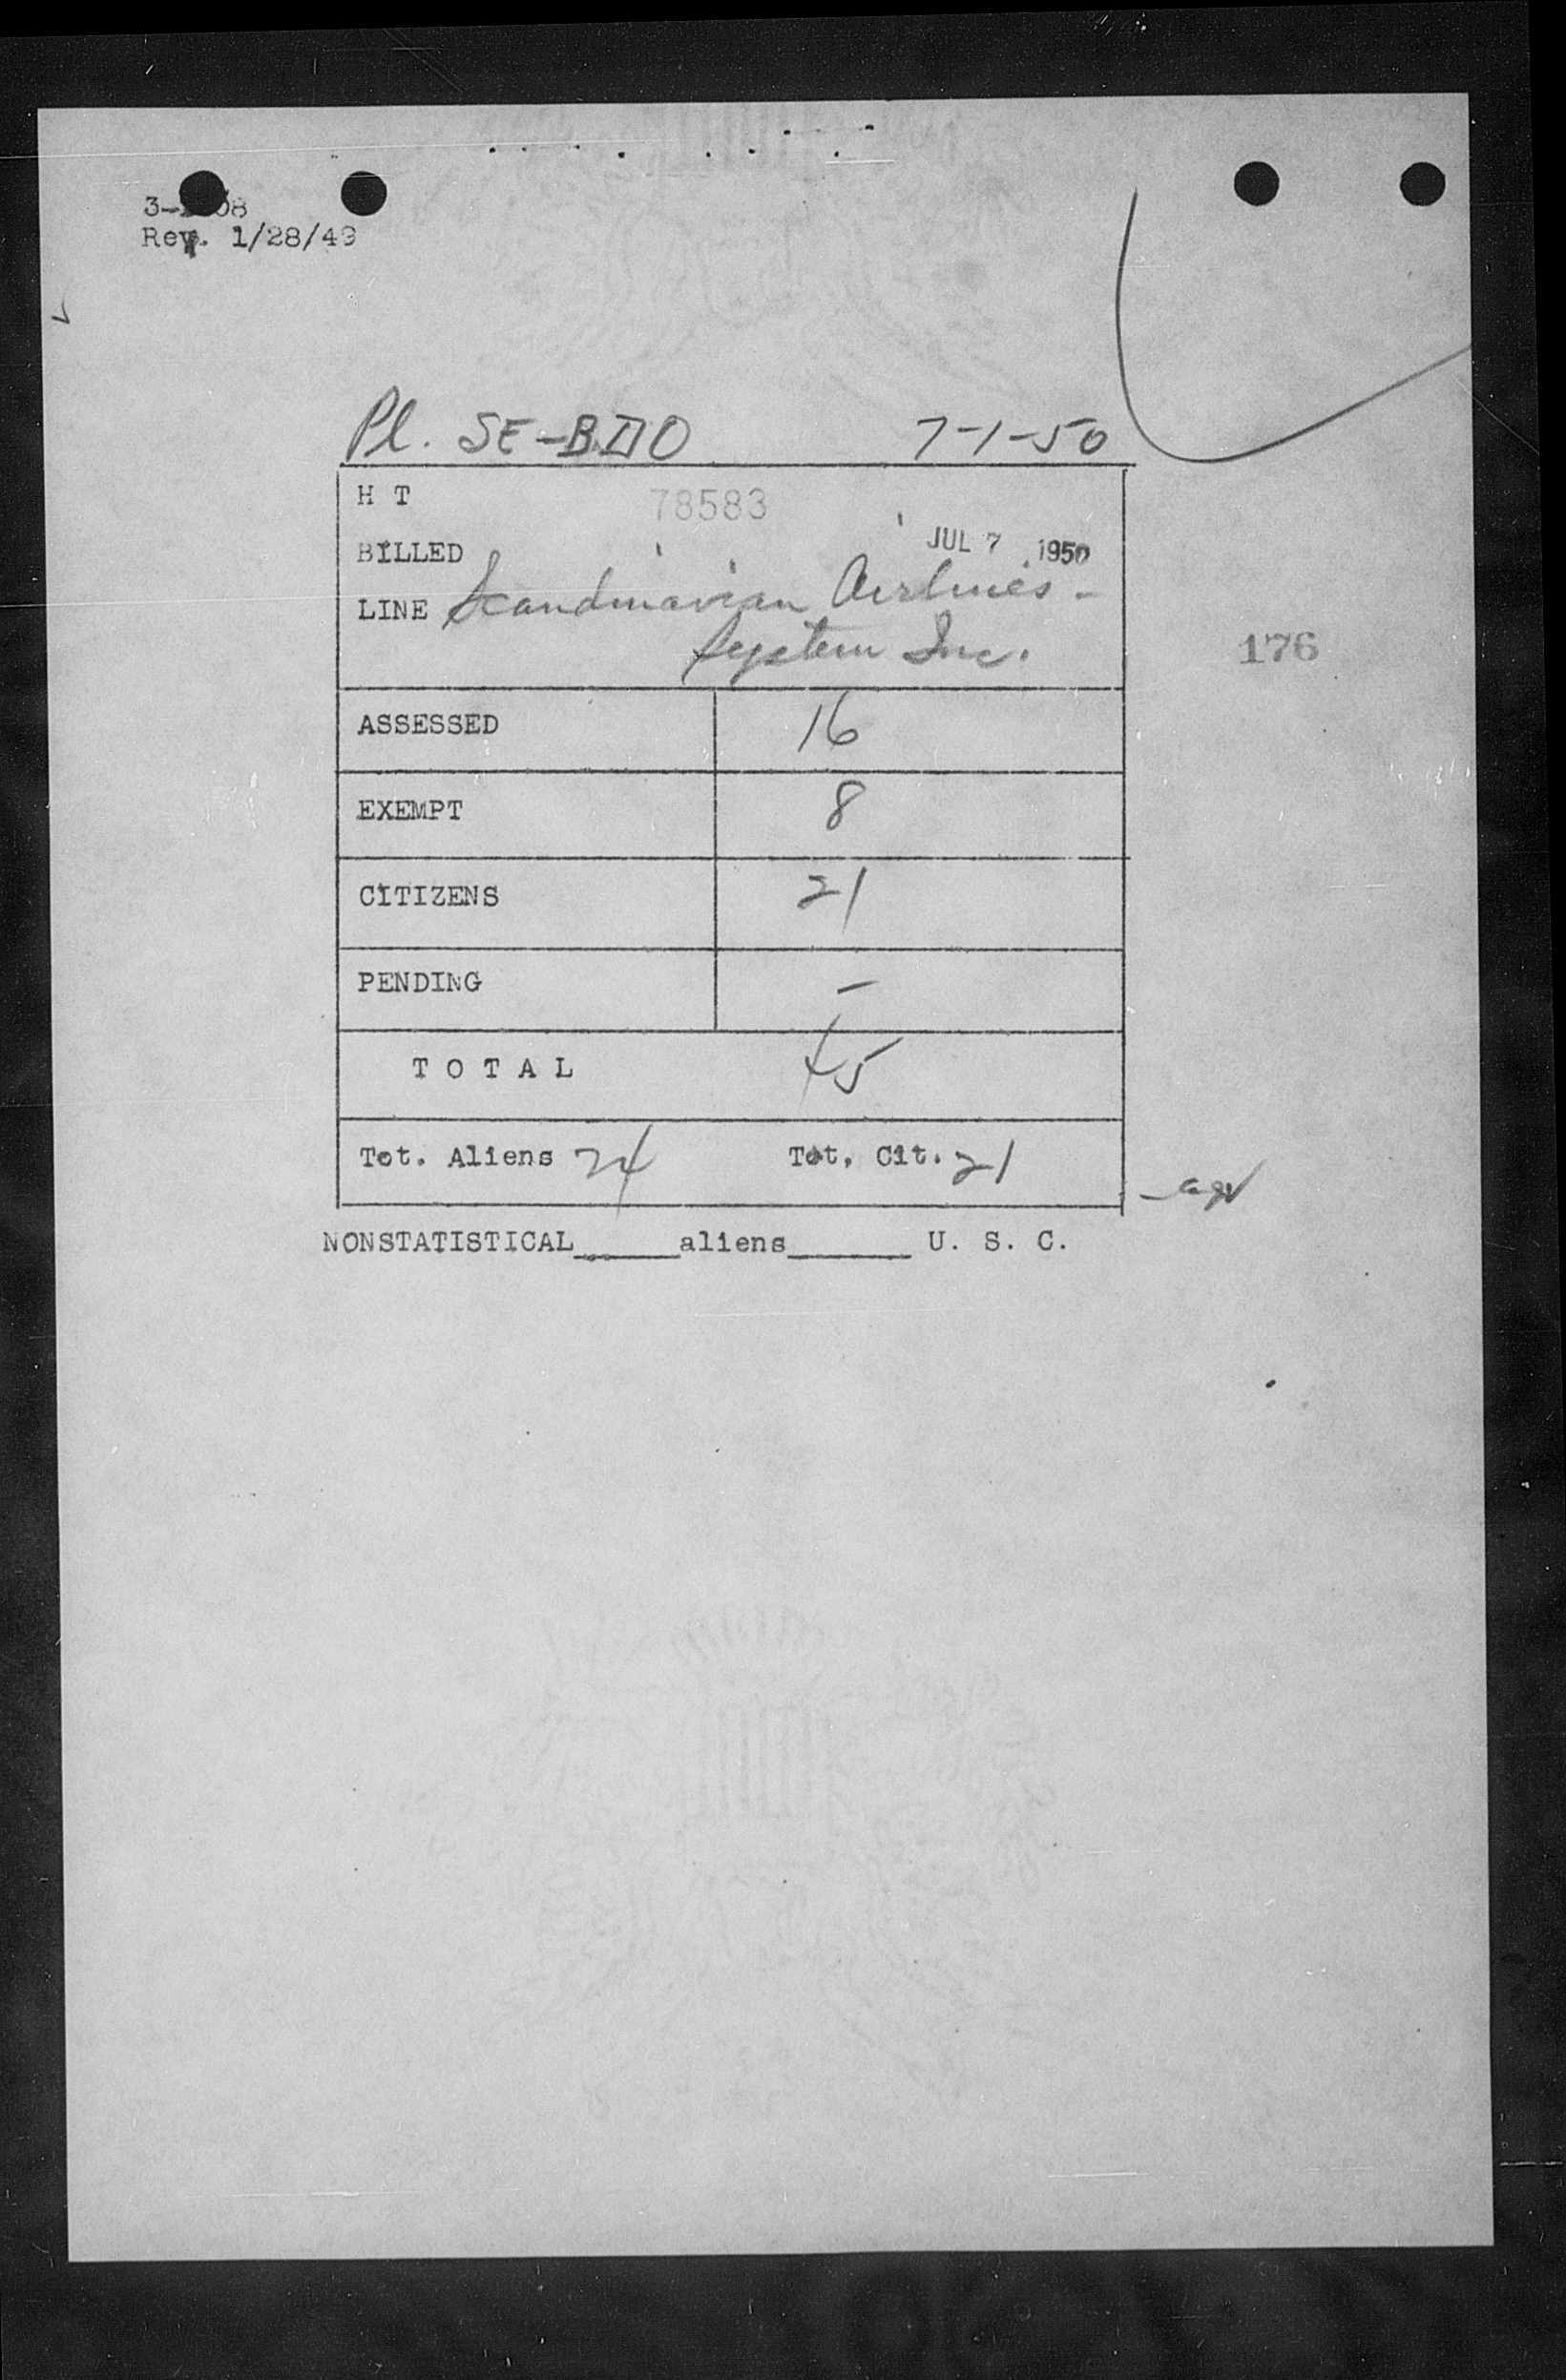 Rev. 1/28/49
Pl. SE-BDO 7-1-50
H T 78583
BILLED JUL 7 1950
LINE Scandinavian Airlines -
System Inc.
176
ASSESSED 16
EXEMPT 8
CITIZENS 21
PENDING -
T O T A L 45
Tot. Aliens 24 Tot. Cit. 21
NONSTATISTICAL_____aliens______ U. S. C.